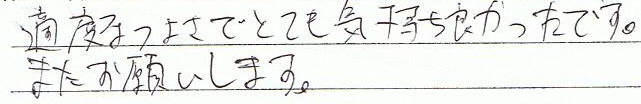 適度なつよさでとても気持ち良かったです。
またお願いします。